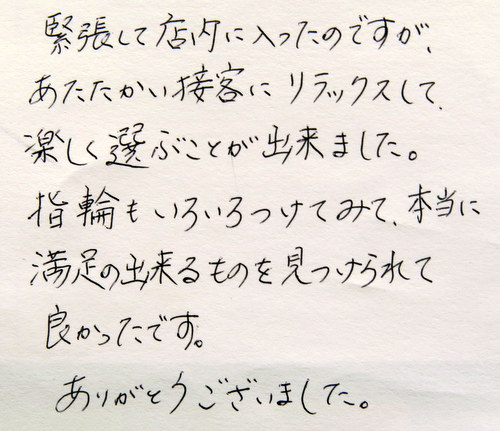 緊張して店内に入ったのですが、
あたたかい接客にリラックスして、
楽しく選ぶことが出来ました。
指輪もいろいろつけてみて、本当に
満足の出来るものを見つけられて
良かったです。
ありがとうございました。